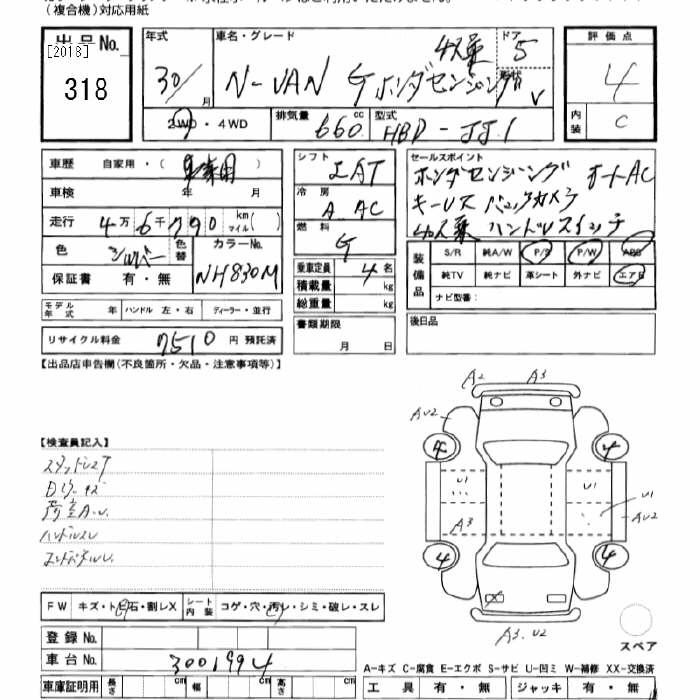 (複合機)対応用紙
出品No.
[2018]
318
年式
30/
月
車名・グレード
4人乗
N-VAN G ホンダセンシング
ドア
5
形状
V
2WD・4WD
排気量
660
cc
型式
HBD-JJ1
評価点
4
内装
C
車歴 自家用・( 事業用 )
車検 年 月
走行 4万6千790 km マイル( )
色 シルバー 色替 カラーNo. NH830M
保証書 有・無
シフト
IAT
冷房
A AC
燃料
G
乗車定員 4 名
積載量 kg
総重量 kg
セールスポイント
ホンダセンシング オートAC
キーレス バックカメラ
4人乗 ハンドルスイッチ
装備品
S/R 純A/W P/S P/W ABS
純TV 純ナビ 革シート 外ナビ エアB
ナビ型番:
モデル年式 年 ハンドル 左・右 ディーラー・並行
書類期限 月 日
後日品
リサイクル料金 7510 円 預託済
【出品店申告欄(不良箇所・欠品・注意事項等)】
A2 A3
AU2
4 4
U1 U1
U1
AU2
A3
4 4
A3.U2
スペア
【検査員記入】
スタッドレスタ
荷室A.U.
ハンドルスレ
FW キズ・トビ石・割レX シート内装 コゲ・穴・汚レ・シミ・破レ・スレ
登録No.
車台No. 3001994
車庫証明用 長さ cm 幅 cm 高さ cm
A-キズ C-腐食 E-エクボ S-サビ U-凹ミ W-補修 XX-交換済
工具 有・無 ジャッキ 有・無